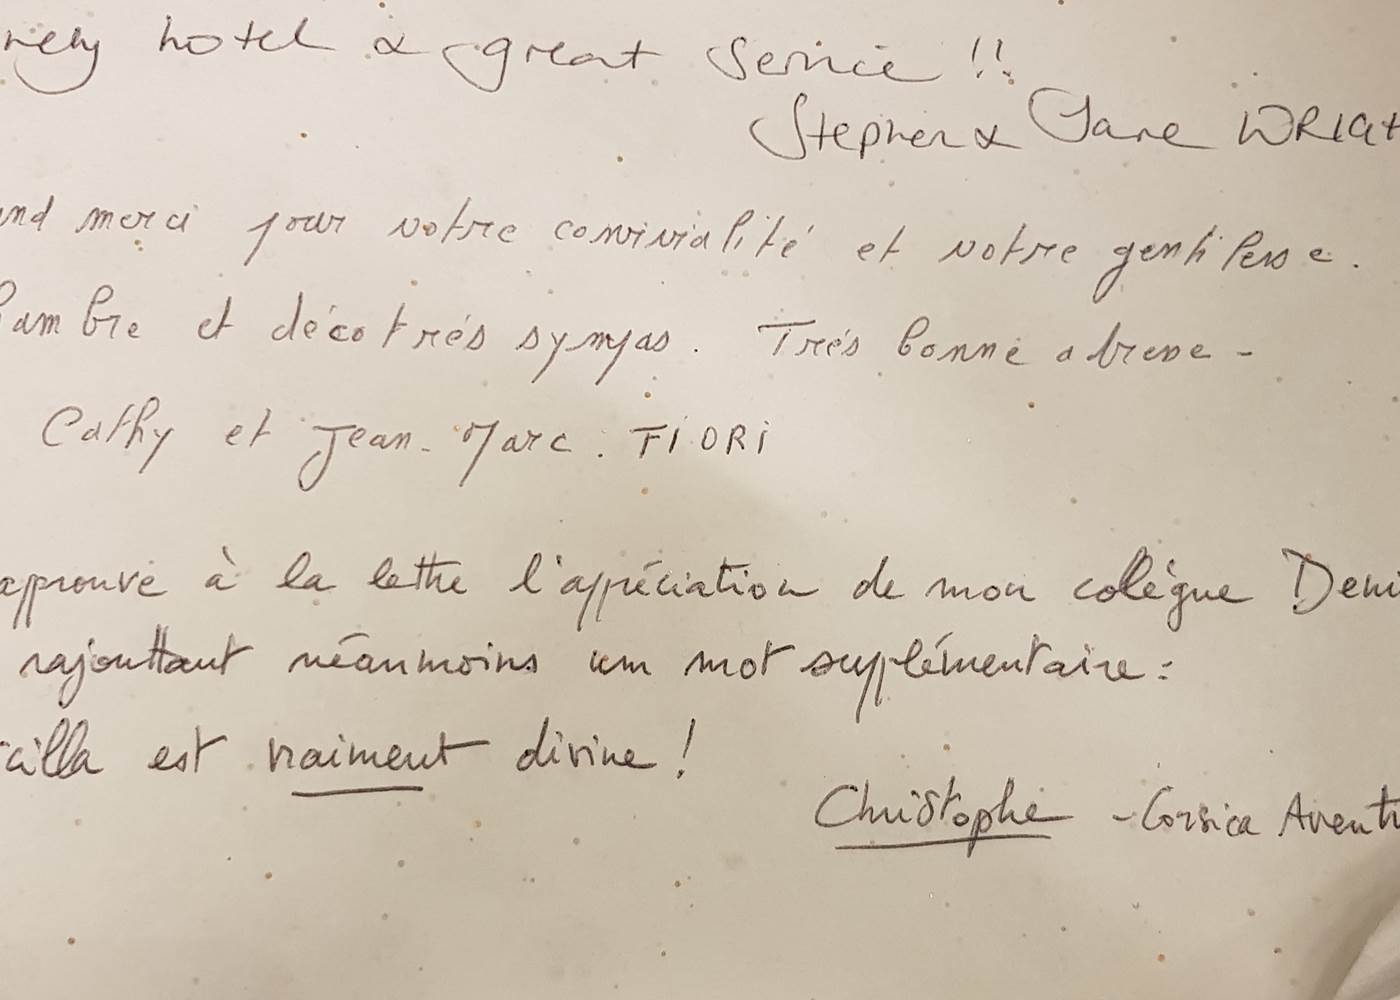 hotel & great service !!
Stephen & Jane WRIGH
and merci pour votre convivialité et votre gentillesse.
ambre et déco trés sympas. Trés bonne adresse -
Cathy et Jean-Marc. FIORI
approuve à la lettre l'appréciation de mon colègue Deni
rajouttant néanmoins um mot supplémentaire :
cilla est vraiment divine !
Christophe - Corsica Avent